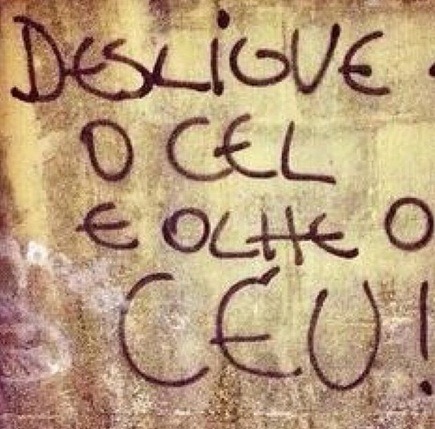 DESLiGUE
O CEL
E OLHE O
CÉU!